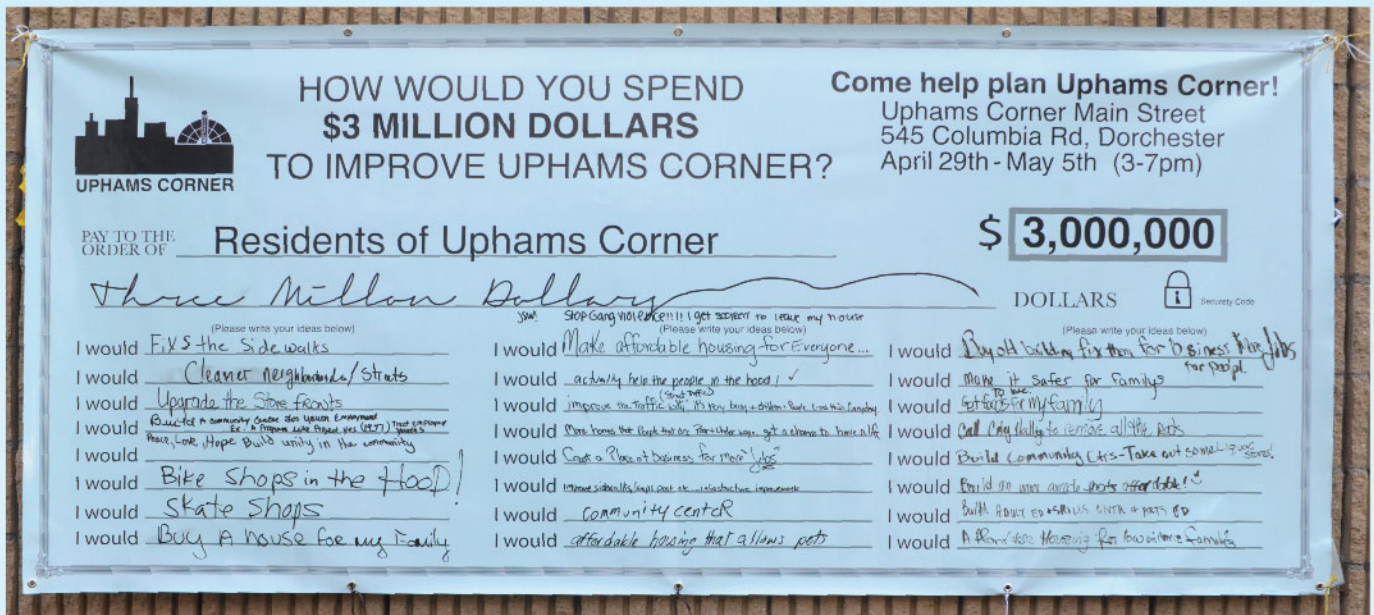 HOW WOULD YOU SPEND
$3 MILLION DOLLARS
TO IMPROVE UPHAMS CORNER?
UPHAMS CORNER
Come help plan Uphams Corner!
Uphams Corner Main Street
545 Columbia Rd, Dorchester
April 29th - May 5th (3-7pm)
PAY TO THE
ORDER OF
Residents of Uphams Corner
$ 3,000,000
Three Millon Dollars
DOLLARS
Security Code
(Please write your ideas below)
I would Fix s the Sidewalks
I would Cleaner neighborhoods/Streets
I would Upgrade the Store fronts
Build A community Center for Youth Employment
Ex: A Program Like Project Yes (1997) That employed
Peace, Love, Hope Build unity in the community
I would
I would
I would Bike Shops in the Hood!
I would Skate Shops
I would Buy A house for my Family
Stop Gang violence!!!! I get to leave my house
(Please write your ideas below)
I would Make affordable housing for Everyone...
I would actually help the people in the hood! ✓
I would improve the Traffic
(Street Traffic)
I would More homes that People that are get a chance to have a life
I would a Place of business for more "Jobs"
I would improve infrastructure improvement
I would community centeR
I would affordable housing that allows pets
(Please write your ideas below)
I would Buy old building fix them for business Jobs
for peopl
I would Make it safer for familys
to live
I would for My family
I would Call to remove all the
I would Build Community Ctrs - Take out some Liquor Stores!
I would Build an affordable!
I would Build ADULT ED + SKILLS ARTS ED
I would Affordable Housing for low income familys